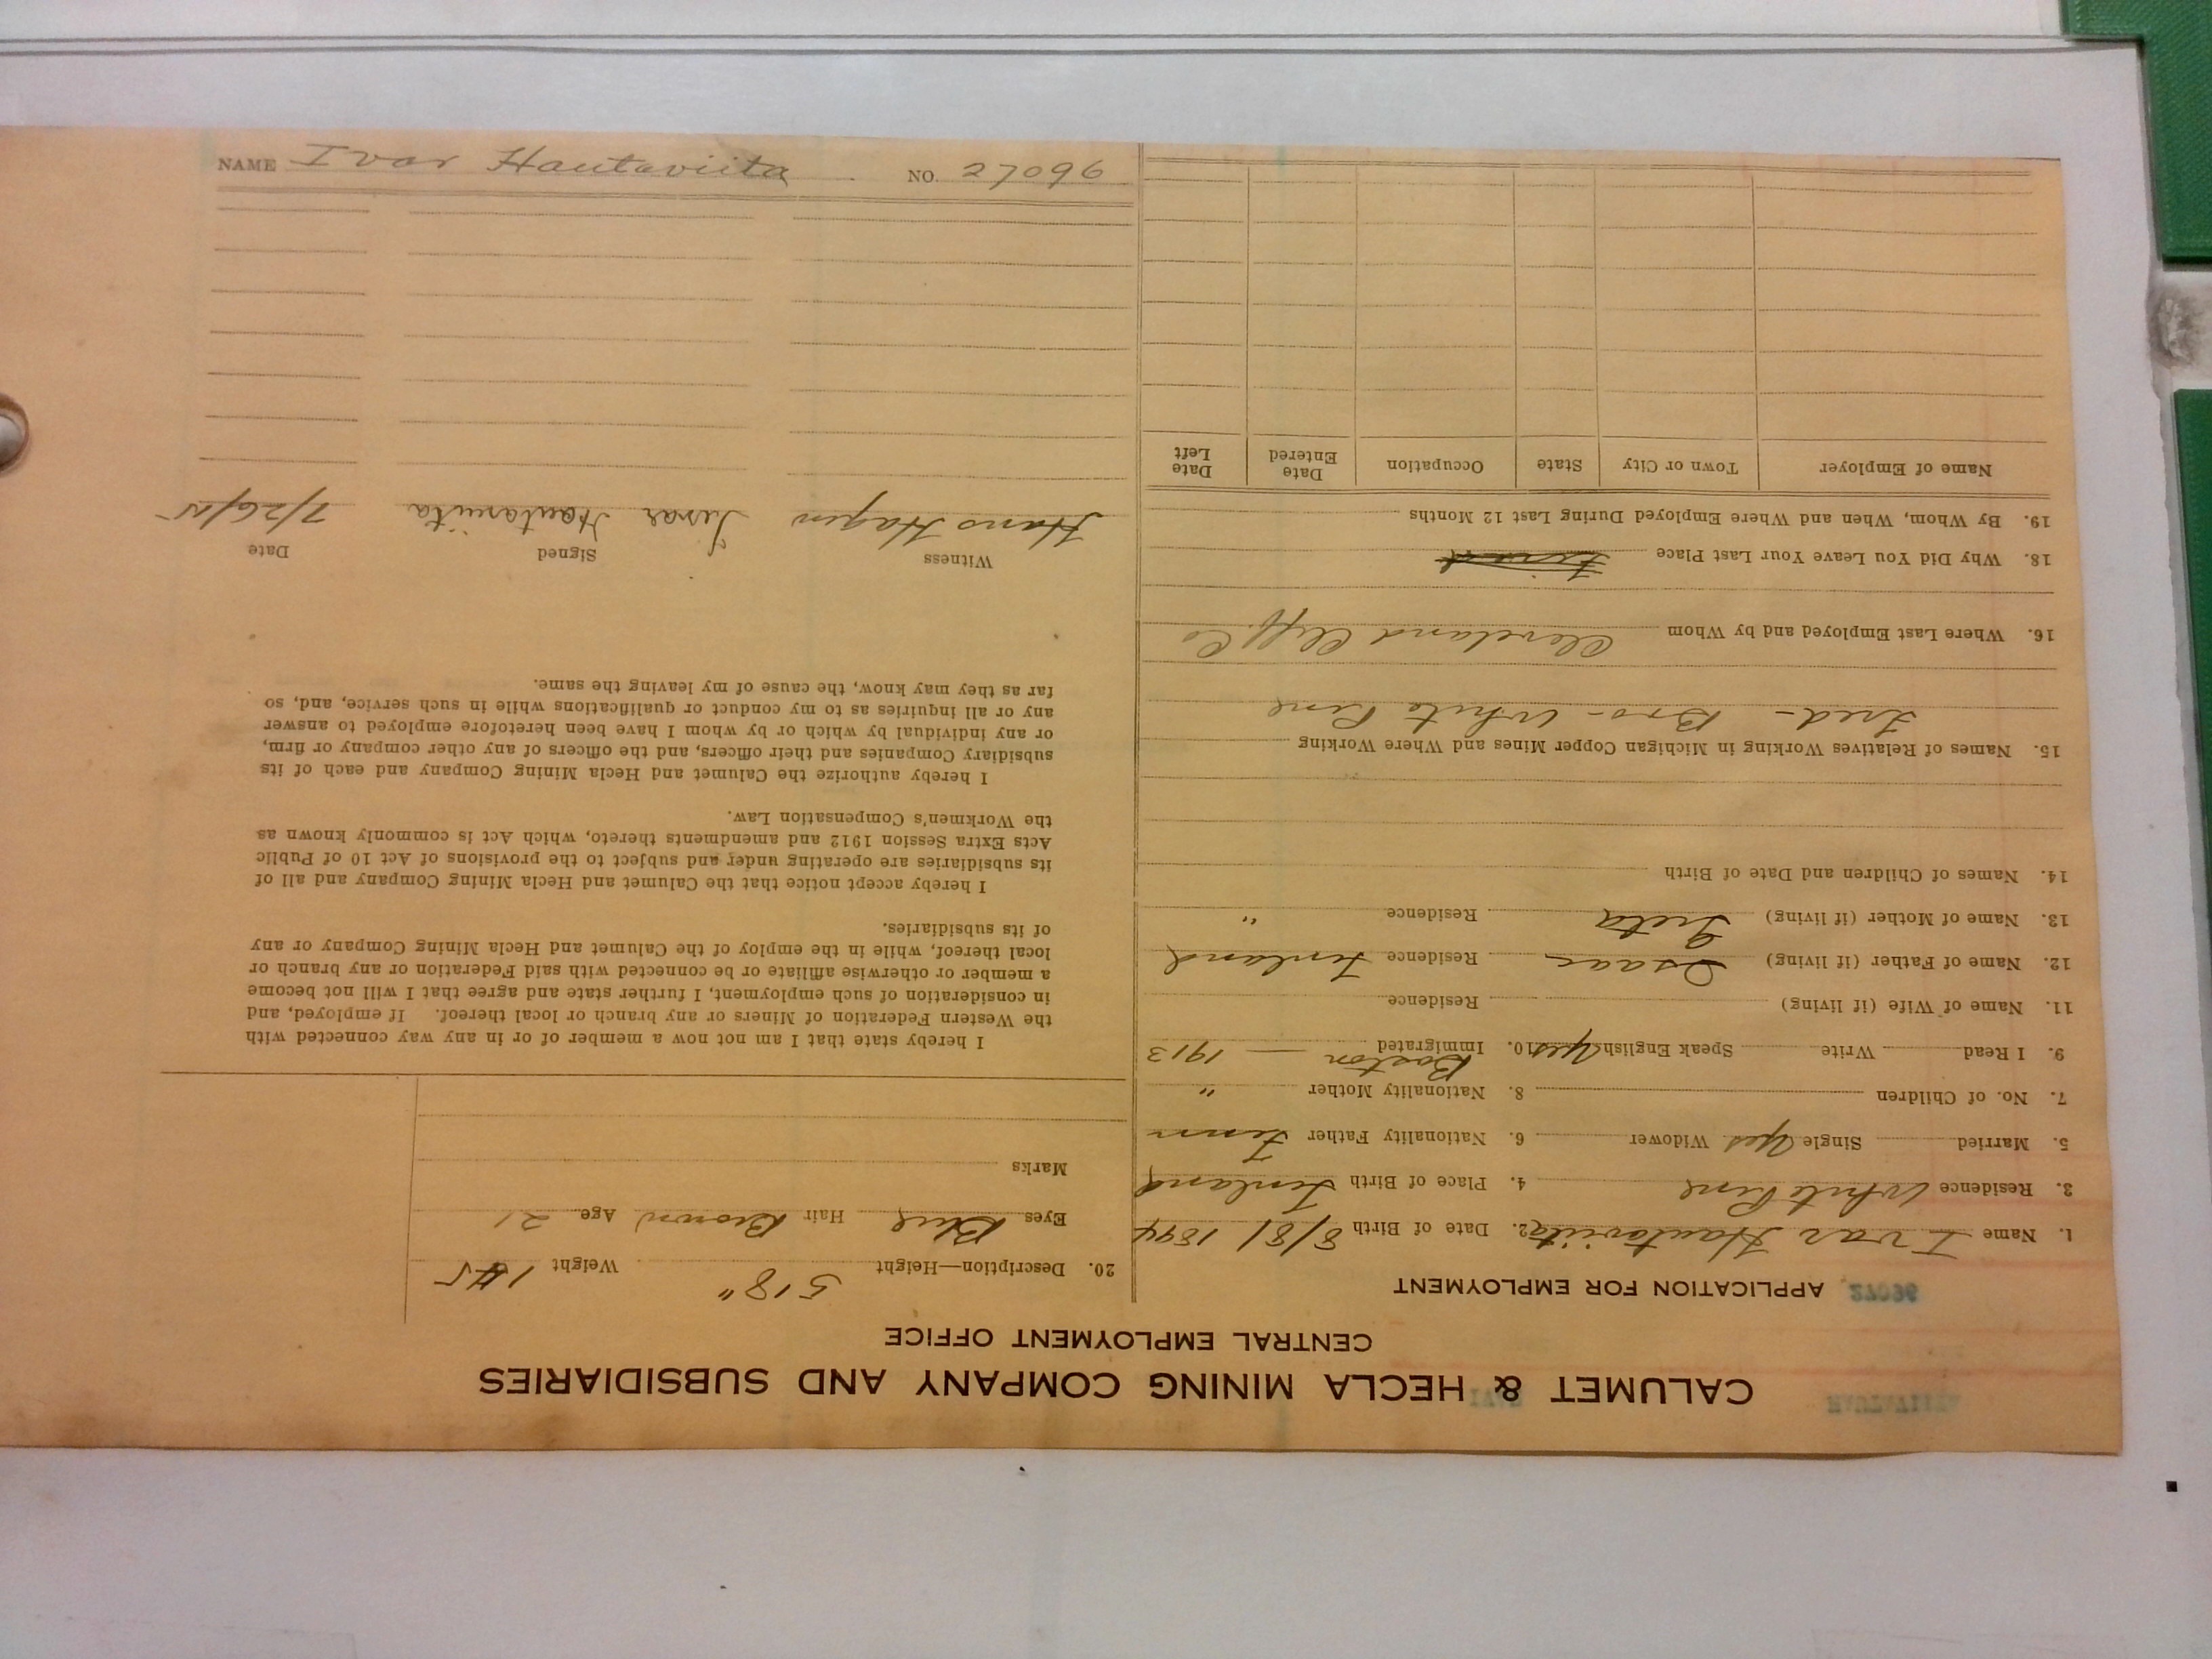 CALUMET & HECLA MINING COMPANY AND SUBSIDIARIES
CENTRAL EMPLOYMENT OFFICE
APPLICATION FOR EMPLOYMENT
1. Name Ivar Hautaviita 2. Date of Birth 8/8/ 1894
3. Residence White Pine 4. Place of Birth Finland
5. Married Single Yes Widower 6. Nationality Father Finn
7. No. of Children 8. Nationality Mother "
9. I Read Write Speak English Yes 10. Immigrated Boston — 1913
11. Name of Wife (if living) Residence
12. Name of Father (if living) Isaac Residence Finland
13. Name of Mother (if living) Greta Residence "
14. Names of Children and Date of Birth
15. Names of Relatives Working in Michigan Copper Mines and Where Working
Fred - Bro - White Pine
16. Where Last Employed and by Whom Cleveland Cliff. Co
18. Why Did You Leave Your Last Place
19. By Whom, When and Where Employed During Last 12 Months
Name of Employer Town or City State Occupation Date Entered Date Left
20. Description—Height 5'8" Weight 145
Eyes Blue Hair Brown Age 21
Marks
I hereby state that I am not now a member of or in any way connected with
the Western Federation of Miners or any branch or local thereof. If employed, and
in consideration of such employment, I further state and agree that I will not become
a member or otherwise affiliate or be connected with said Federation or any branch or
local thereof, while in the employ of the Calumet and Hecla Mining Company or any
of its subsidiaries.
I hereby accept notice that the Calumet and Hecla Mining Company and all of
its subsidiaries are operating under and subject to the provisions of Act 10 of Public
Acts Extra Session 1912 and amendments thereto, which Act is commonly known as
the Workmen's Compensation Law.
I hereby authorize the Calumet and Hecla Mining Company and each of its
subsidiary Companies and their officers, and the officers of any other company or firm,
or any individual by which or by whom I have been heretofore employed to answer
any or all inquiries as to my conduct or qualifications while in such service, and, so
far as they may know, the cause of my leaving the same.
Witness Signed Date
Hans Hagen Iivar Hautaviita 7/26/15
NAME Ivar Hautaviita NO. 27096